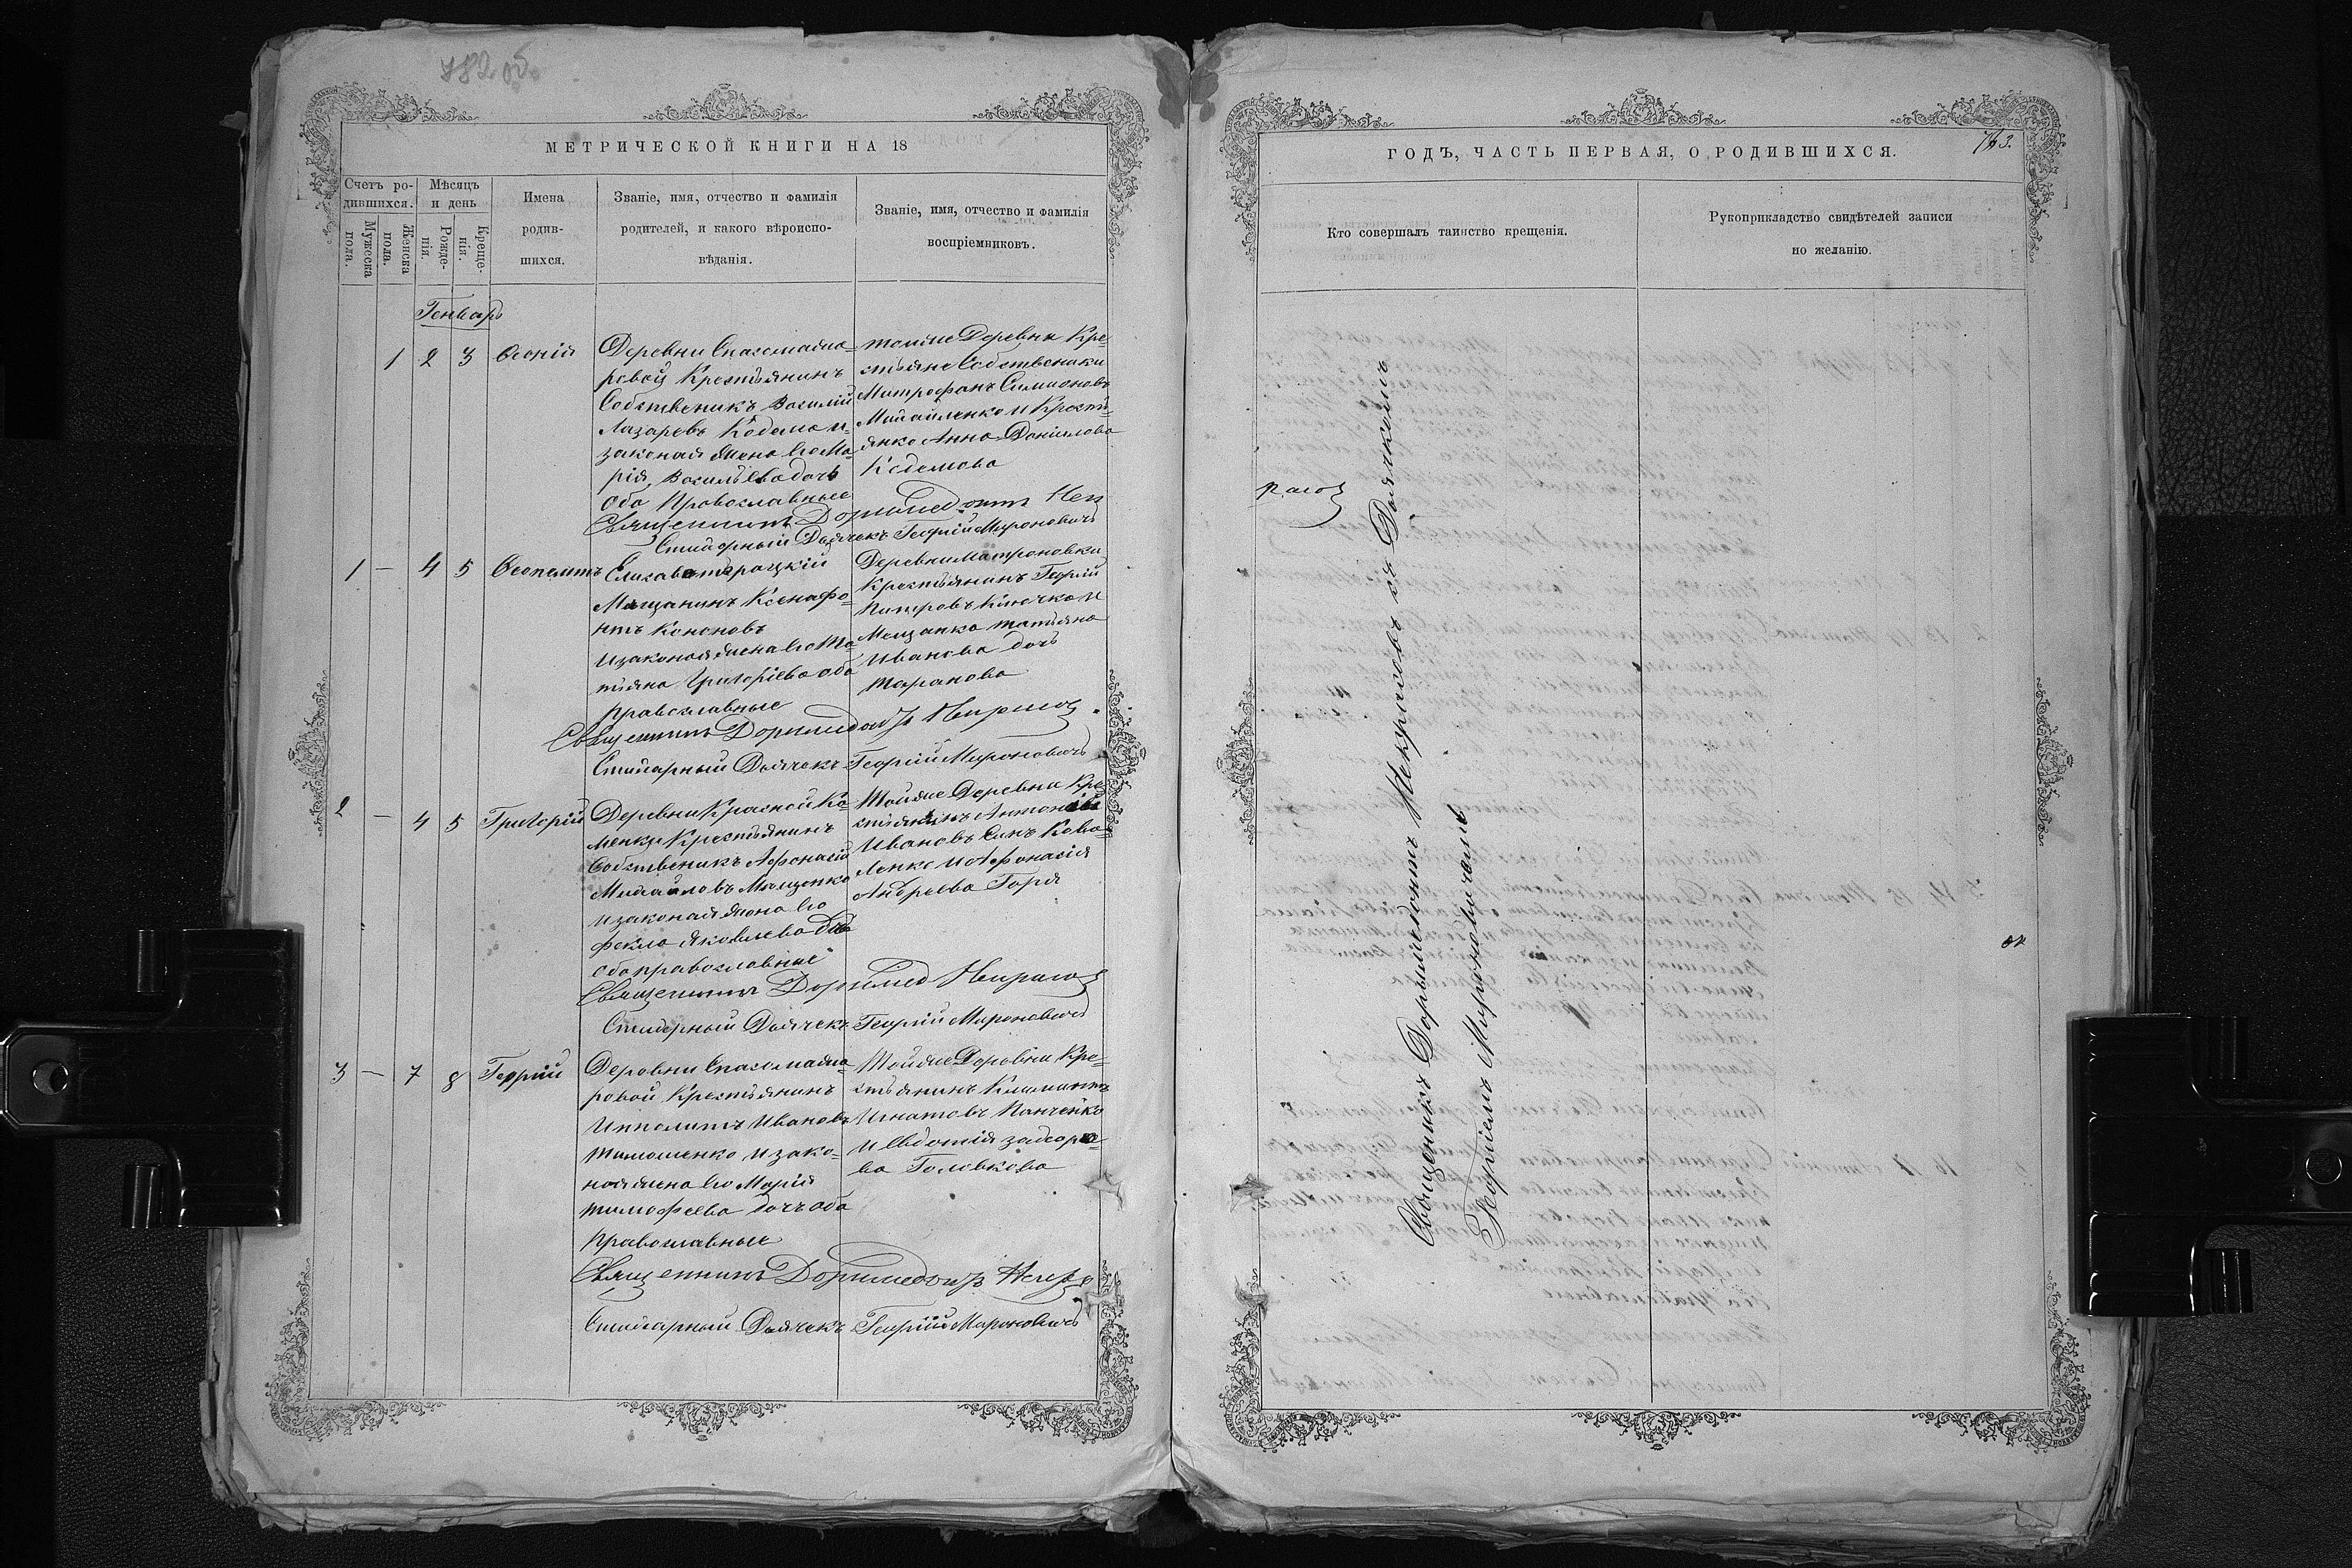 782 об.
МЕТРИЧЕСКОЙ КНИГИ НА 18
Счетъ ро-
дившихся.
Мужеска
пола.
Женска
пола.
Мѣсяцъ
и день
Рожде-
нія.
Креще-
нія.
Имена
родив-
шихся.
Званіе, имя, отчество и фамилія
родителей, и какого вѣроиспо-
вѣданія.
Званіе, имя, отчество и фамилія
воспріемниковъ.
Генваръ
1 2 3
Деревни
ровой Крестьянинъ
Собственикъ Василій
Лазаревъ
законая жена его Ма-
рія Васильева дочь
оба Православные
тойже Деревни Кре-
стьяне Собственики
Митрофанъ Симионовъ
и Крестья-
нка Анна Даніилова
Священникъ
Стихарный Дьячекъ Георгій Мироновичъ
1 — 4 5
Елисаветграцкій
Мещанинъ Ксенофо-
нтъ Кононовъ
и законая жена его Та-
тіяна Григоріева оба
православные
Деревни Матроновки
Крестьянинъ Георгій
Мещанка татьяна
Иванова дочь
таранова
Священникъ Доримедонтъ Некрасов
Стихарный Дьячекъ Георгій Мироновичъ
2 — 4 5 Григорій
Деревни Красной Ка-
менки Крестьянинъ
Собственикъ Афонасій
Михайловъ Мищенко
и законая жена его
фекла Яковлева
оба православніе
Тойже Деревни Кре-
Ивановъ Синъ Кова-
ленко и Афонасія
Андреева Горя
Священникъ Доримед Некрасов
Стихарный Дьячекъ Георгій Мироновичъ
3 — 7 8 Георгій
Деровни
ровой Крестьянинъ
Ипполитъ Ивановъ
тимошенко и зако-
ная жена его Марія
тимофеева дочъ оба
православные
Тойже Деровни Кре-
стьянинъ Климентъ
Игнатовъ Панченко
и Евдокія
ва Головкова
Священникъ Доримедонтъ
Стихарный Дьячекъ Георгій Мироновичъ
ГОДЪ, ЧАСТЬ ПЕРВАЯ, О РОДИВШИХСЯ.
Кто совершалъ таинство крещенія.
Рукоприкладство свидѣтелей записи
по желанію.
расов
Священникъ Доримедонтъ Некрасовъ съ Дьячкомъ
Георгіемъ Мироновичемъ